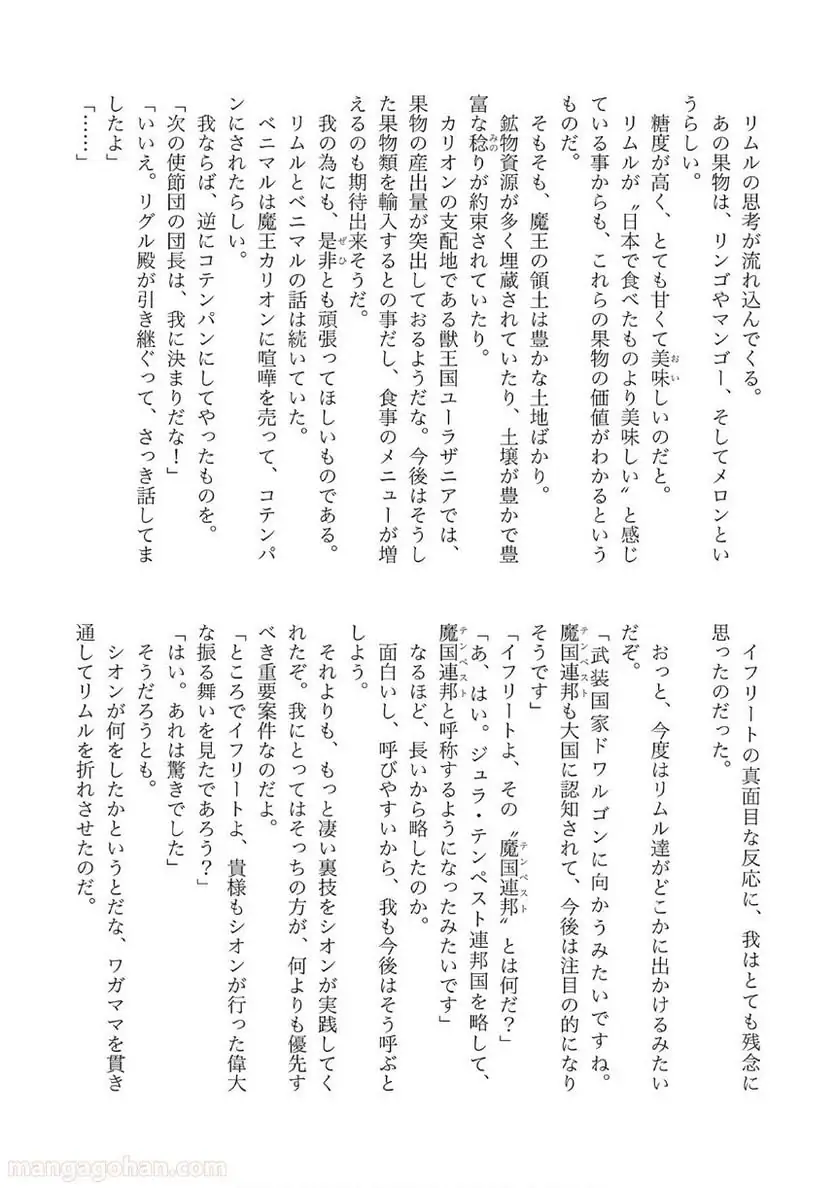 リムルの思考が流れ込んでくる。
あの果物は、リンゴやマンゴー、そしてメロンとい
うらしい。
糖度が高く、とても甘くて美味しいのだと。
リムルが〝日本で食べたものより美味しい〟と感じ
ている事からも、これらの果物の価値がわかるという
ものだ。
そもそも、魔王の領土は豊かな土地ばかり。
鉱物資源が多く埋蔵されていたり、土壌が豊かで豊
富な稔りが約束されていたり。
カリオンの支配地である獣王国ユーラザニアでは、
果物の産出量が突出しておるようだな。今後はそうし
た果物類を輸入するとの事だし、食事のメニューが増
えるのも期待出来そうだ。
我の為にも、是非とも頑張ってほしいものである。
リムルとベニマルの話は続いていた。
ベニマルは魔王カリオンに喧嘩を売って、コテンパ
ンにされたらしい。
我ならば、逆にコテンパンにしてやったものを。
「次の使節団の団長は、我に決まりだな！」
「いいえ。リグル殿が引き継ぐって、さっき話してま
したよ」
「……」
イフリートの真面目な反応に、我はとても残念に
思ったのだった。
おっと、今度はリムル達がどこかに出かけるみたい
だぞ。
「武装国家ドワルゴンに向かうみたいですね。
魔国連邦も大国に認知されて、今後は注目の的になり
そうです」
「イフリートよ、その〝魔国連邦〟とは何だ？」
「あ、はい。ジュラ・テンペスト連邦国を略して、
魔国連邦と呼称するようになったみたいです」
なるほど、長いから略したのか。
面白いし、呼びやすいから、我も今後はそう呼ぶと
しよう。
それよりも、もっと凄い裏技をシオンが実践してく
れたぞ。我にとってはそっちの方が、何よりも優先す
べき重要案件なのだよ。
「ところでイフリートよ、貴様もシオンが行った偉大
な振る舞いを見たであろう？」
「はい。あれは驚きでした」
そうだろうとも。
シオンが何をしたかというとだな、ワガママを貫き
通してリムルを折れさせたのだ。
mangagohan.com